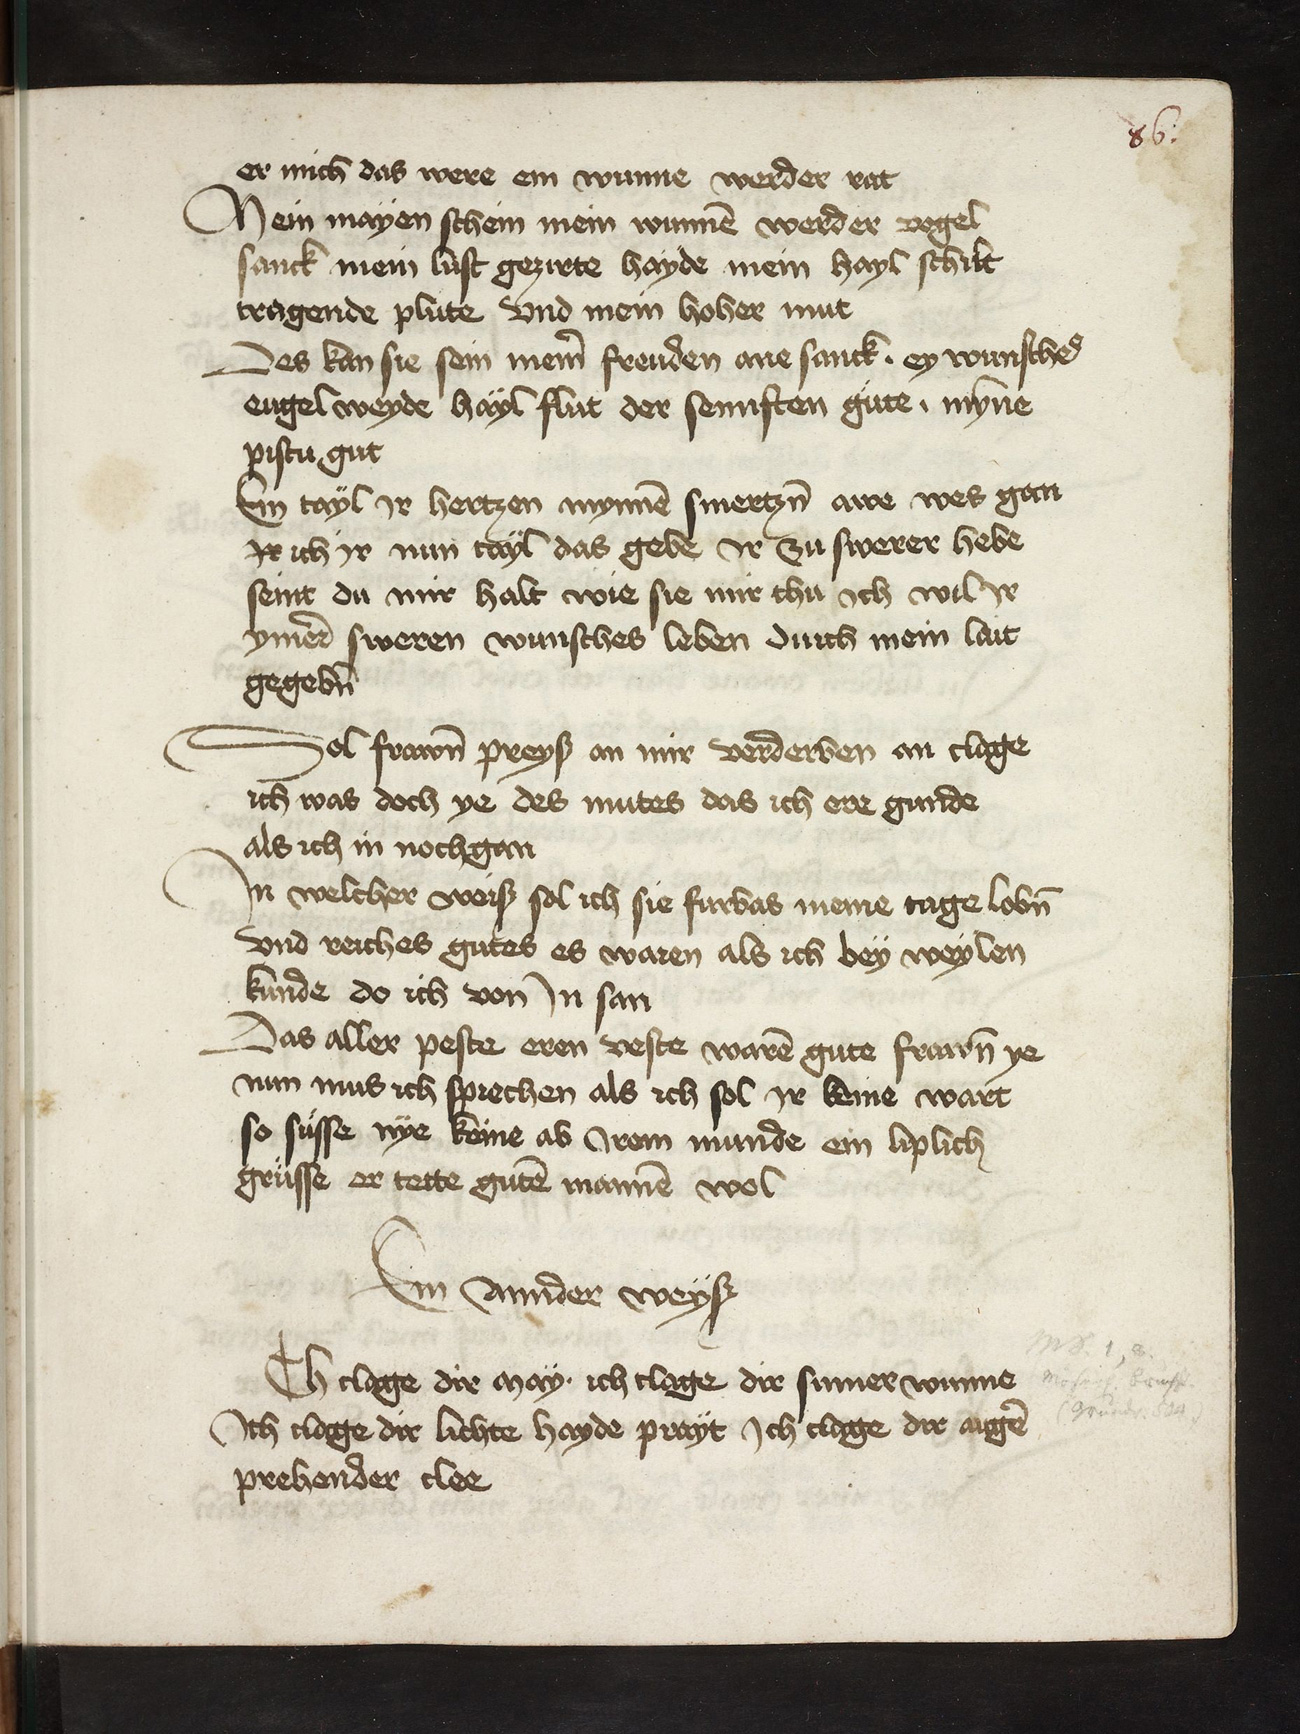 86.
er mich das were ein wunne werder rat
Mein mayen schein mein wunnē werder vogel
sanck mein lust gezirte hayde mein hayl schilt
tragende plute vnd mein hoher mut
Des kan sie sein mein̄ freuden ane sanck . ey wunsched
engel weyde hayl flut der sennften gute . myn̄e
pistu gut
Ein tayl ir hertzen mynnē smertzn̄ awe wes gan
Ir ich ir nun tayl das gebe ir zu swerer hebe
seint du mir halt wie sie mir thu ich wil ir
ymer sweren wunsches leben durch mein lait
gegebn̄
Sol frawn̄ preyß an mir verderben an clage
ich was doch ye des mutes das ich ere gunde
als ich in noch gan
In welcher weiß sol ich sie furbas meine tage lobn̄
vnd reiches gutes es waren als ich bey weylen
kunde do ich von In san
Das aller peste eren veste warē gute frawn̄ ye
nun mus ich sprechen als ich sol ir keine wart
so süsse nye keine ab irem munde ein liplich
grüsse er tette gutē mannē wol
Ein annder weyß
Ich clage dir may . ich clage dir sumer wunne
Ich clage dir lichte hayde prayt Ich clage dir augē
prehender clee
MS. 1, 3.